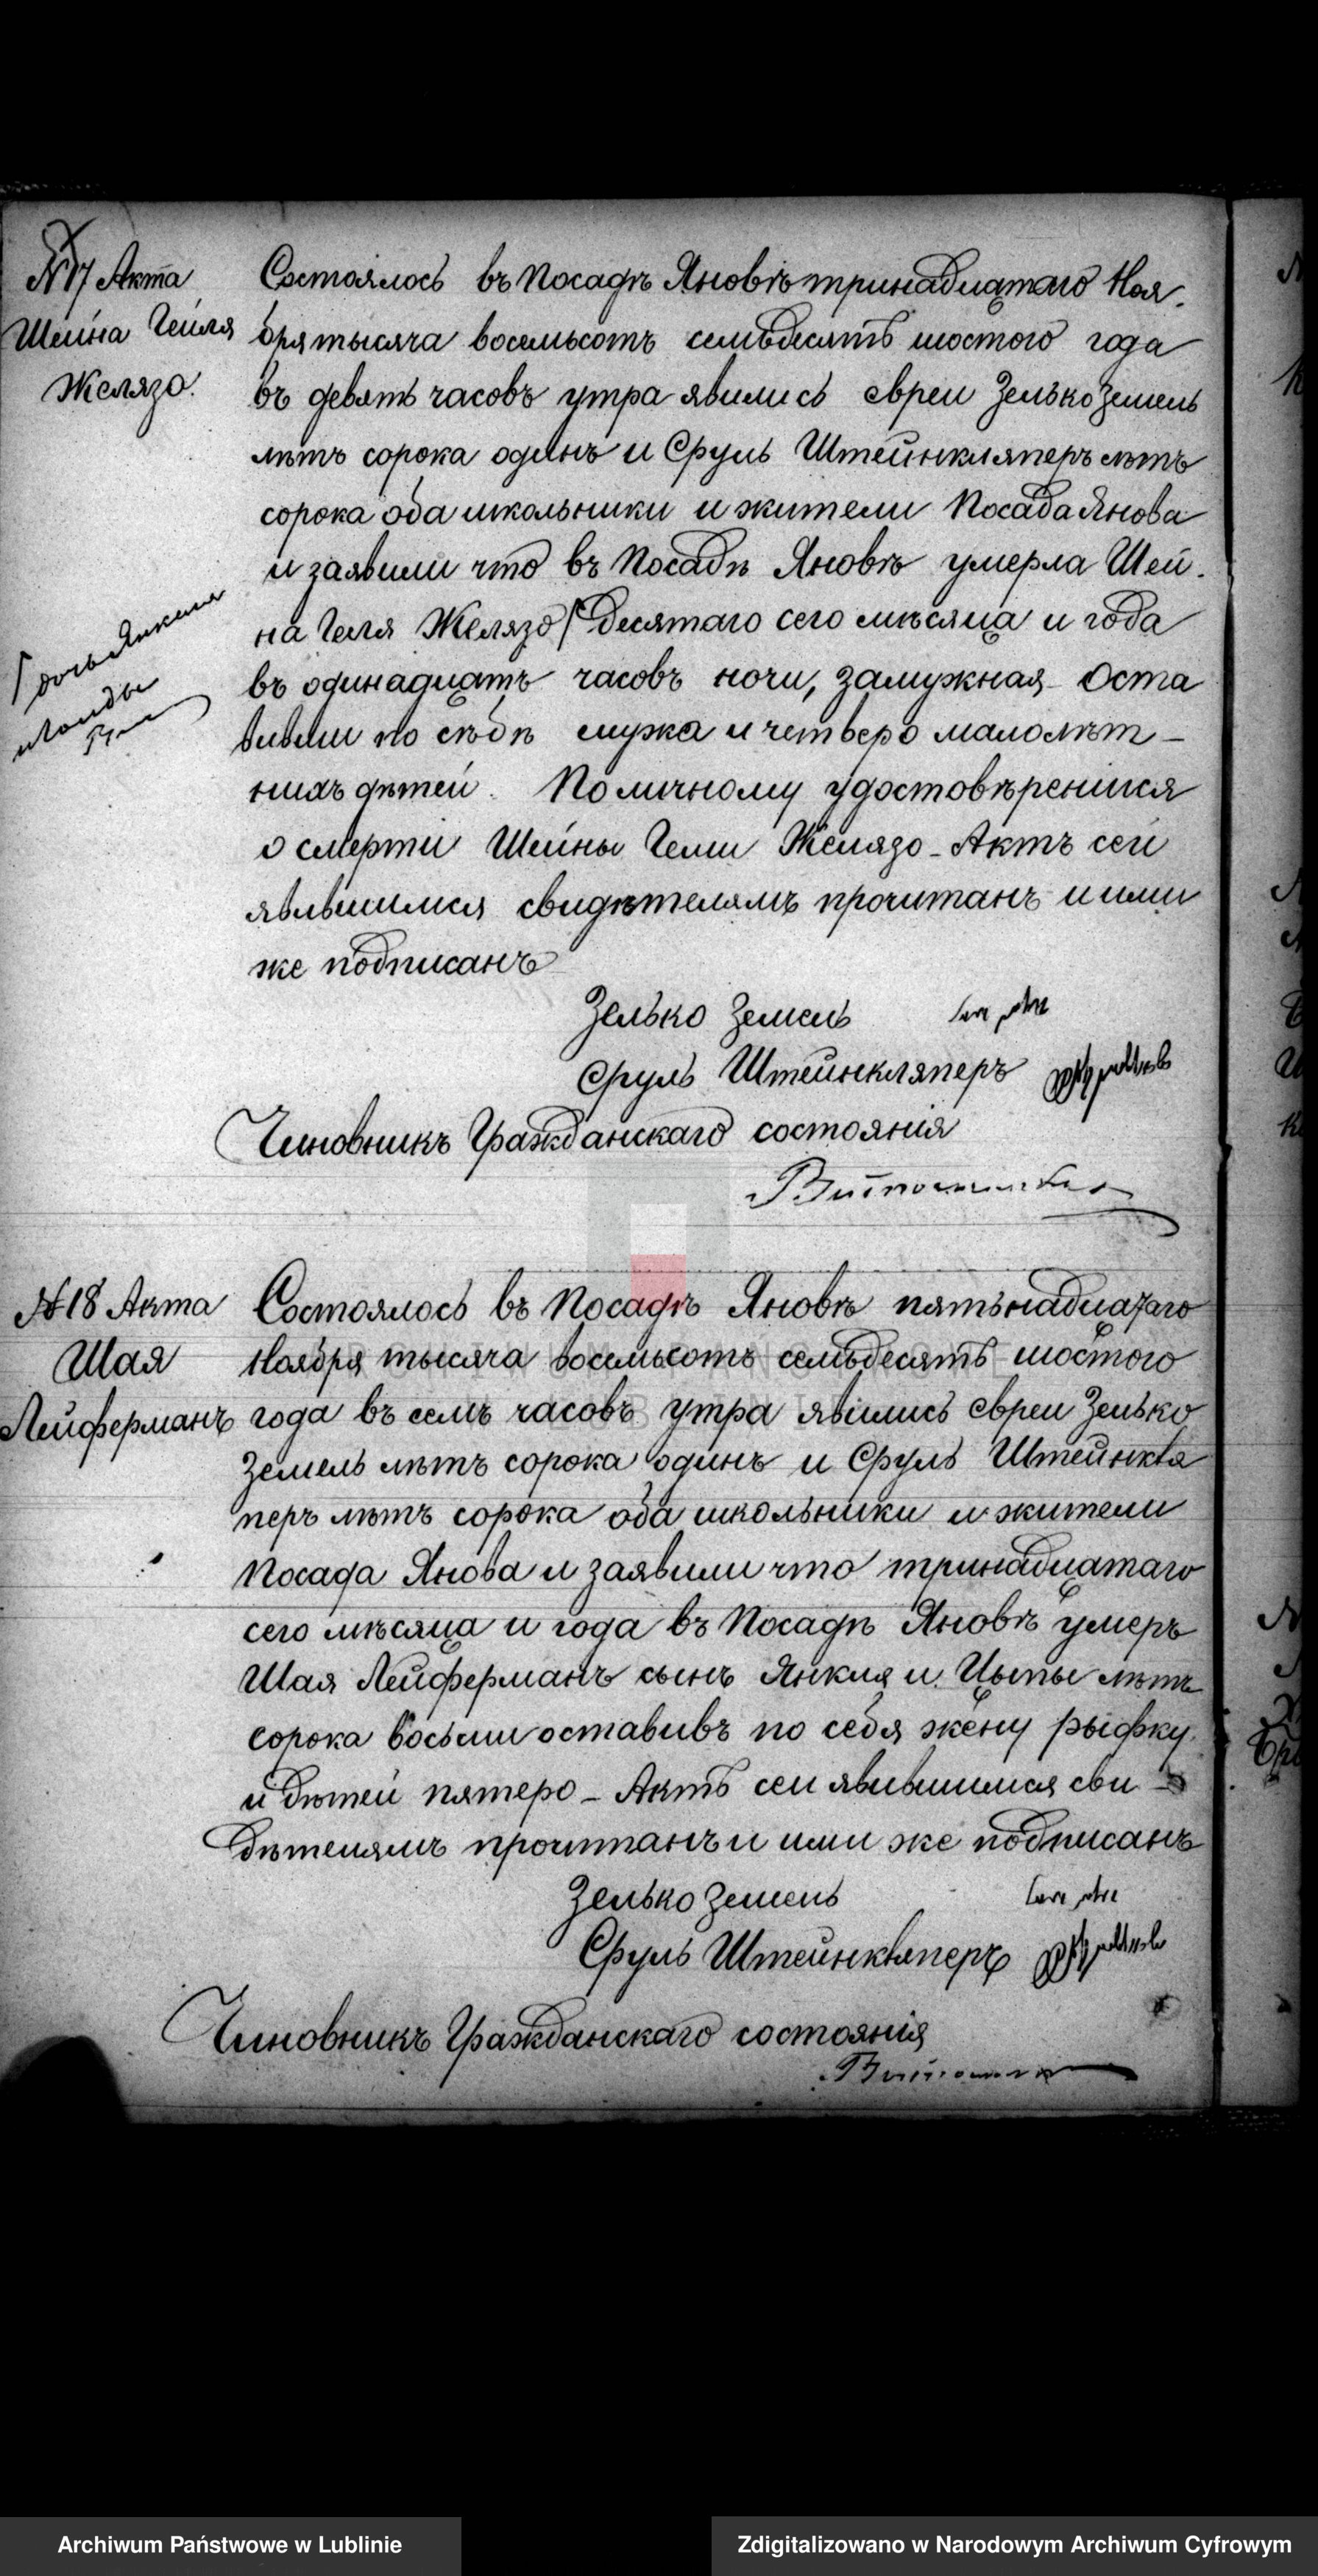 №17 Акта
Шейна Гейля
Желязо.
Состоялось въ Посадѣ Яновѣ тринадцатаго Ноя-
бря тысяча восемьсотъ семьдесятъ шостого года
въ девять часовъ утра явились евреи Зелько Земель
лѣтъ сорока одинъ и Сруль Штейнкляперъ лѣтъ
сорока оба школьники и жители Посада Янова
и заявили что въ Посадѣ Яновѣ умерла Шей-
на Геля Желязо / десятаго сего мѣсяца и года
въ одинадцать часовъ ночи, замужная оста
вивши по себѣ мужа и четверо малолѣт-
нихъ дѣтей. По личному удостовѣренiися
о смерти Шейны Гели Желязо - Актъ сей
явившимся свидѣтелямъ прочитанъ и ими
же подписанъ
дочь Янкеля
Зелько Земель
Сруль Штейнкляперъ
Чиновникъ Гражданскаго состоянія
№18 Акта
Шая
Лейферманъ
Состоялось въ Посадѣ Яновѣ пятьнадцатаго
Ноября тысяча восемьсотъ семьдесятъ шостого
года въ семъ часовъ утра явились евреи Зелько
Земель лѣтъ сорока одинъ и Сруль Штейнкля
перъ лѣтъ сорока оба школьники и жители
Посада Янова и заявили что тринадцатаго
сего мѣсяца и года въ Посадѣ Яновѣ умеръ
Шая Лейферманъ сынъ Янкля и Цыпы лѣтъ
сорока восьми оставивъ по себя жену рыфку
и дѣтей пятеро - Актъ сей явившимся сви -
дѣтелямъ прочитанъ и ими же подписанъ
Зелько Земель
Сруль Штейнкляперъ
Чиновникъ Гражданскаго состоянія
ARCHIWUM PAŃSTWOWE
W LUBLINIE
Archiwum Państwowe w Lublinie
Zdigitalizowano w Narodowym Archiwum Cyfrowym